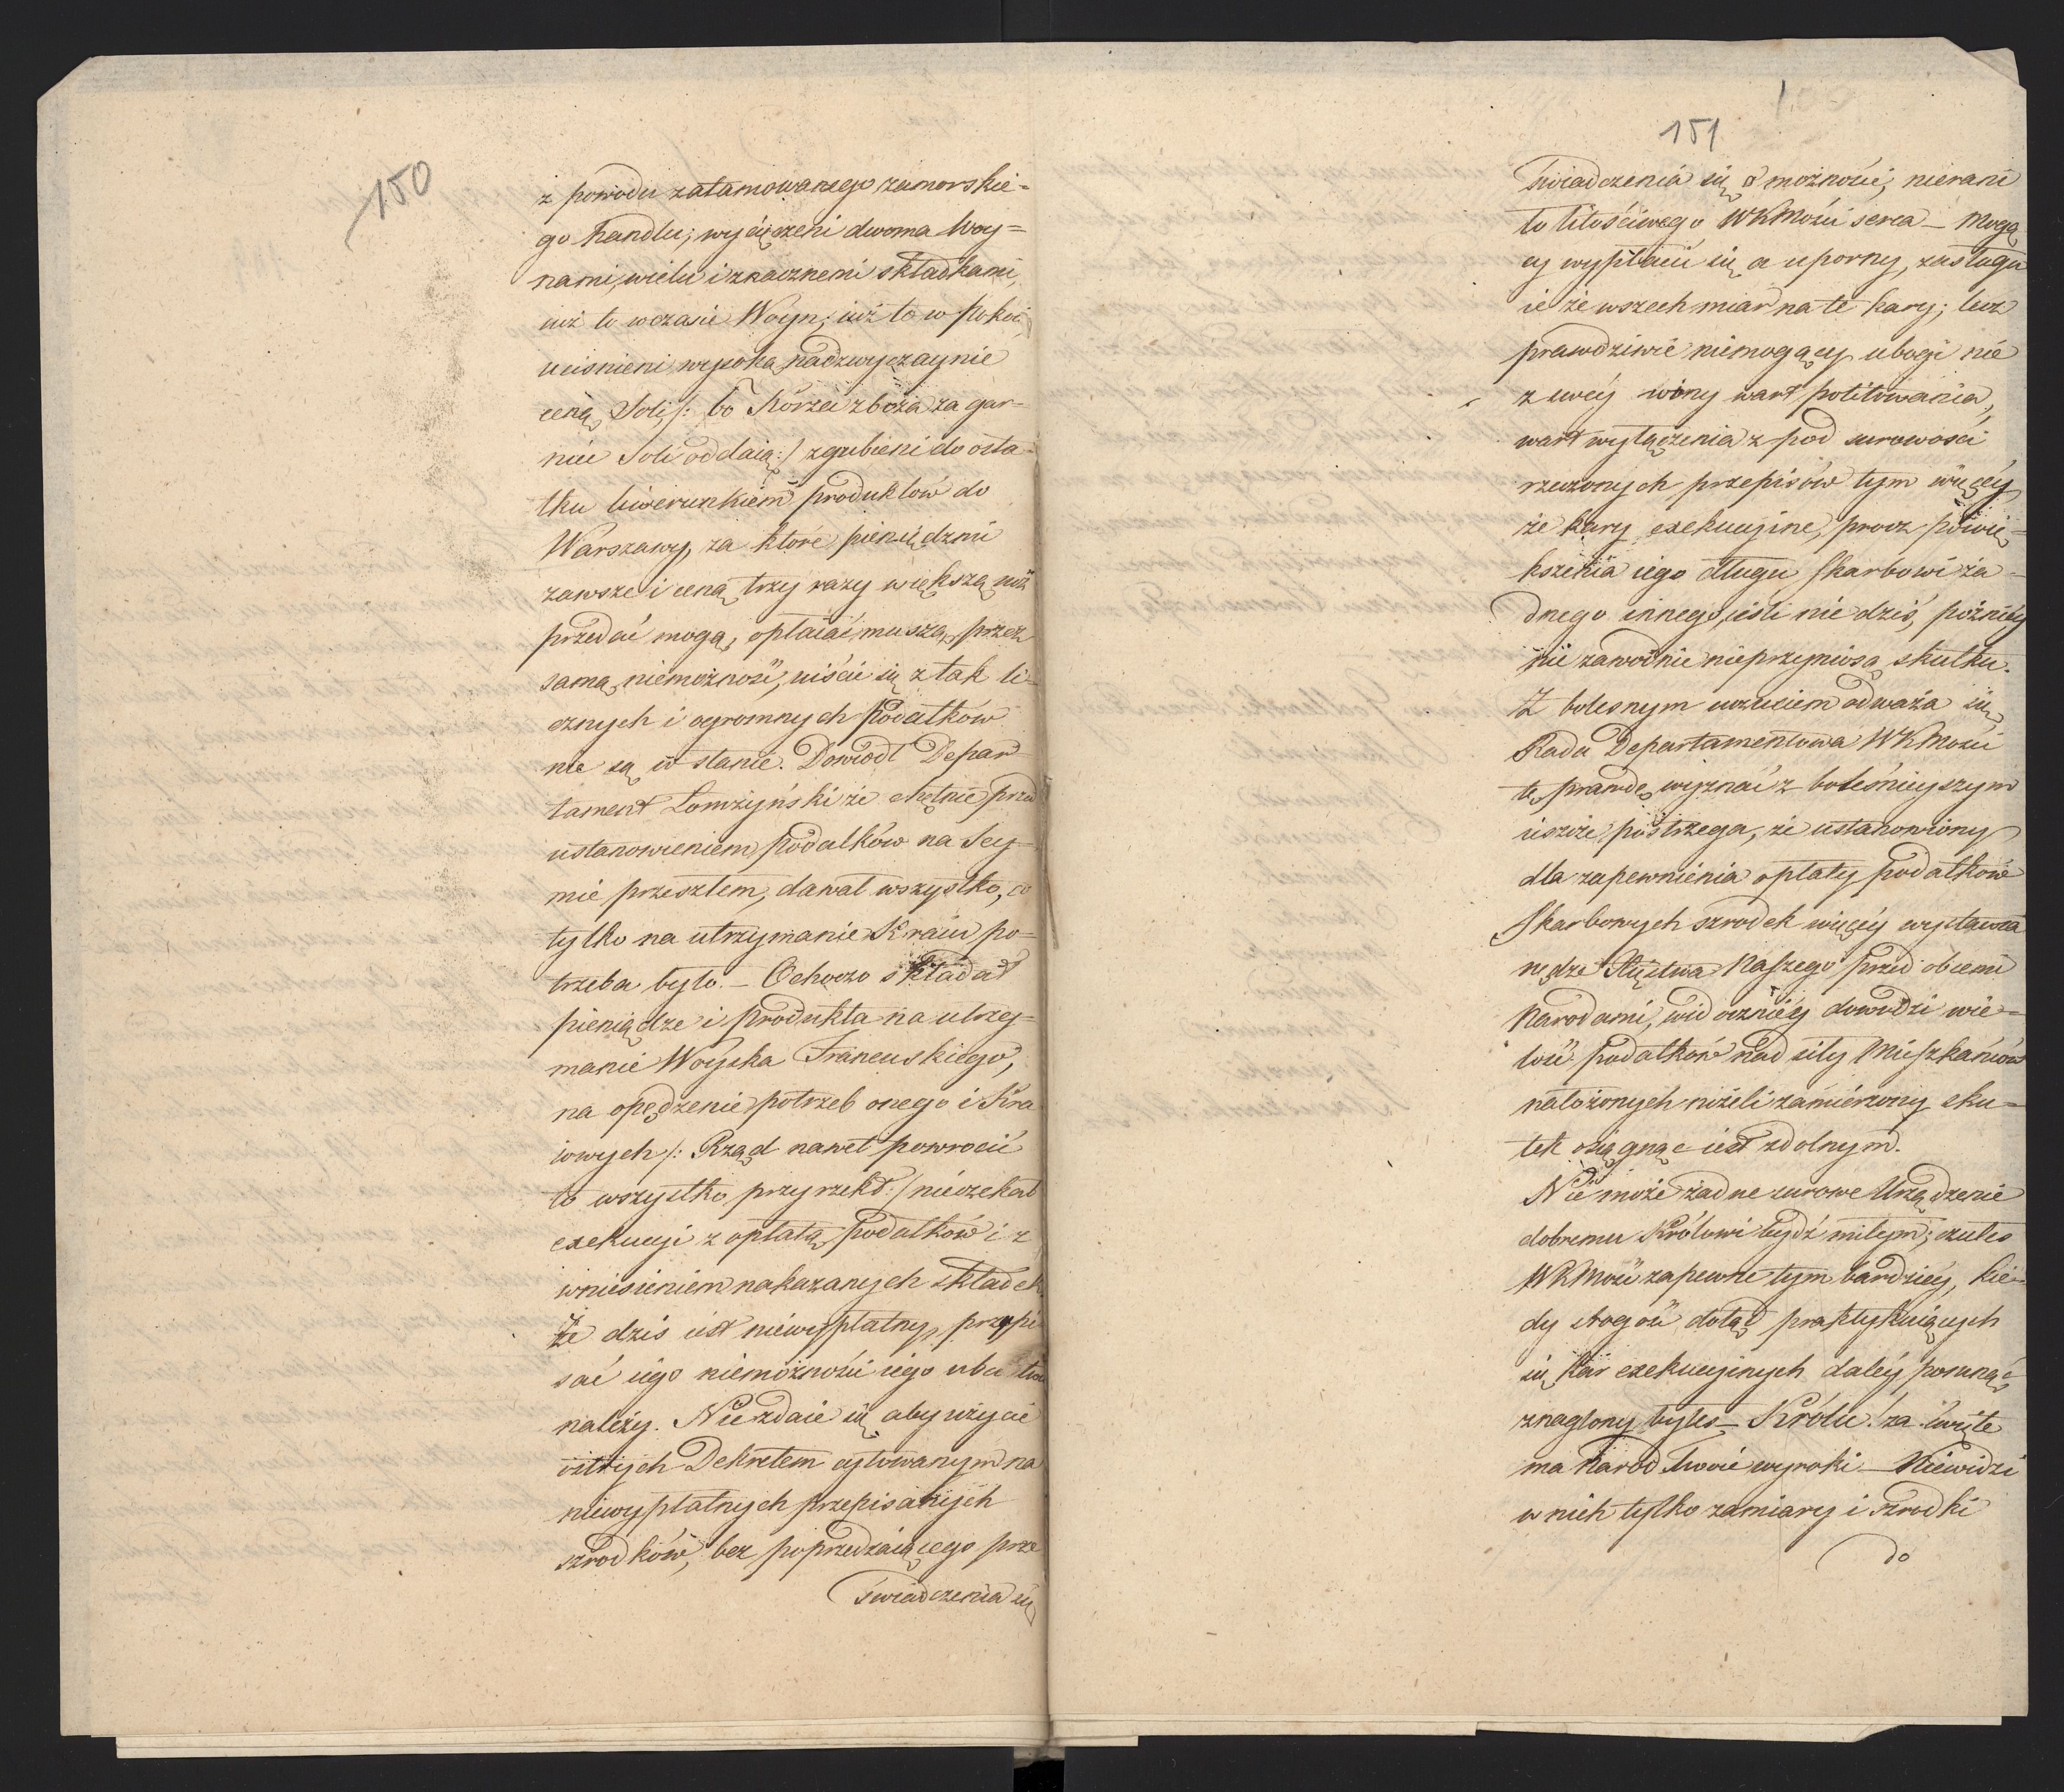 150
z powodu zatamowanego zamorskie=
go handlu; wycięczeni dwoma Woy=
nami, wielu i znacznemi składkami,
iuż to wczasie Woyn; iuż to w Pokoiu
uciśnieni wysoką nadzwyczaynie
ceną Soli /: bo Korzec zboża za gar=
niec Soli oddaią :/ zgubieni do osta=
tku liwerunkiem produktów do
Warszawy, za które pieniędzmi
zawsze i ceną trzy razy większą niż
przedać mogą, opłacać muszą, przez
samą niemożność, uiścić się z tak li=
cznych i ogromnych Podatków
nie są w stanie. Dowiodł Depar=
tament Łomżyński że chętnie przed
ustanowieniem podatków na Sey=
mie przeszłem, dawał wszystko, co
tylko na utrzymanie Kraiu po=
trzeba było. – Ochoczo składał
pieniądze i produkta na utrzy=
manie Woyska Francuskiego,
na opędzenie potrzeb onego i Kra
iowych /: Rząd nawet powrocić
to wszystko przyrzekł :/ nieczekał
exekucyi z opłatą podatków i z
wniesieniem nakazanych składek.
Że dzis iest niewypłatny, przypi
sać iego niemożności iego ubustwu
należy. Nie zdaie się aby użycie
ostrych Dekretem cytowanym na
niewypłatnych przepisanych
szrodków, bez poprzedzaiącego prze
świadczenia się
151
świadczenia się o możności, nierani
to litościwego WKMości serca – Mogą
cy wypłacić się a uporny, zasługu
ie ze wszech miar na te kary; lecz
prawdziwie niemogący ubogi nie
z swey winy wart politowania,
wart wyłączenia z pod surowości
rzeczonych przepisów tym więcey
że kary exekucyine, procz powię=
kszenia iego długu Skarbowi ża=
dnego innego, ieśli nie dziś, poźniey
nie zawodnie nieprzyniosą skutku.
Z bolesnym uczuciem odważa się
Rada Departamentowa WKMości
tę prawdę wyznać z boleśnieyszym
ieszcze postrzega, że ustanowiony
dla zapewnienia opłaty podatków
Skarbowych szrodek więcey wystawia
nędze Xięstwa Naszego przed obcemi
Narodami, widoczniey dowodzi wie=
lość podatków nad siły Mieszkańców
nałożonych niżeli zamierzony sku=
tek osiągnąc iest zdolnym.
Nie może żadne surowe Urządzenie
dobremu Królowi bydź miłym; czułeś
WKMość zapewne tym bardziey, kie=
dy srogość dotąd praktykuiących
się kar exekucyinych daley posunąć
znaglony byłeś – Królu! za święte
ma Naród Twoie wyroki – Niewidzi
w nich tylko zamiary i szrodki
do